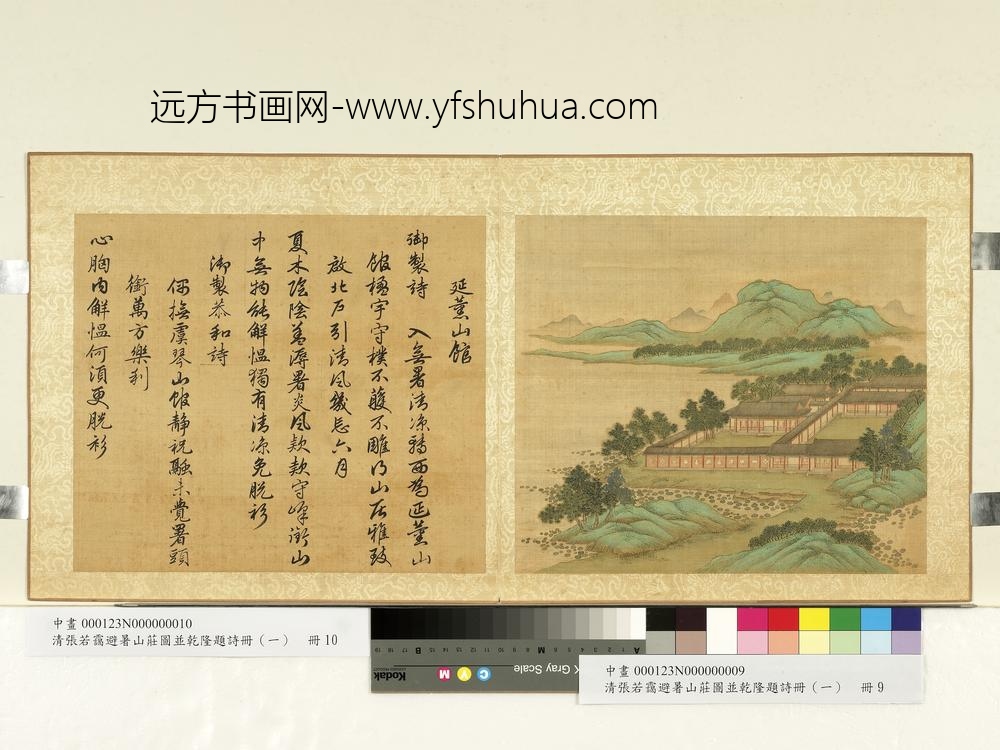 远方书画网-www.yfshuhua.com
延薰山館
御製詩 入無暑清涼轉西為延薰山
館楹宇守樸不雘不雕得山居雅致
啟北戶引清風幾忘六月
夏木陰陰蓋溽暑炎風款款守峰銜山
中無物能解慍獨有清涼免脫衫
御製恭和詩
偶撫虞琴山館靜祝融未覺署頭
銜萬方樂利
心胸內解慍何須更脫衫
中畫 000123N000000010
清張若靄避暑山莊圖並乾隆題詩冊（一） 冊10
中畫 000123N000000009
清張若靄避暑山莊圖並乾隆題詩冊（一） 冊9
Kodak
Gray Scale
C Y M
A
M
B